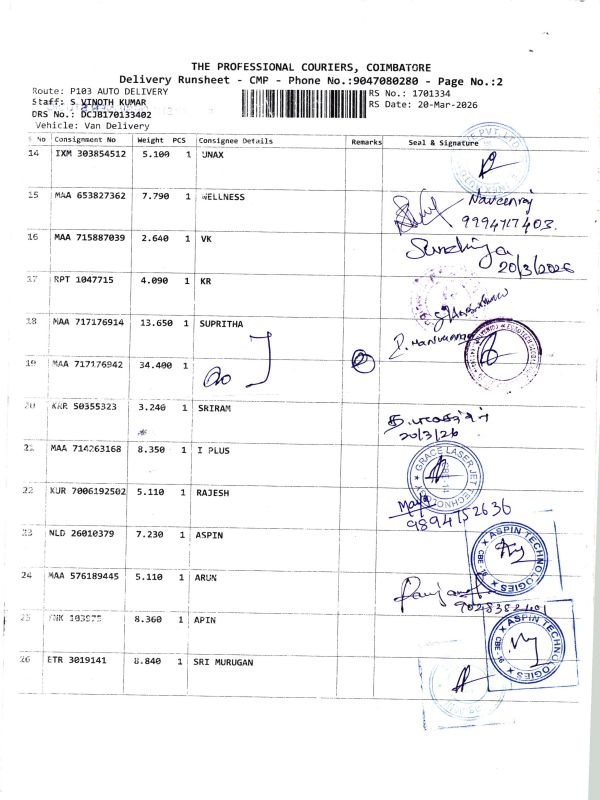 THE PROFESSIONAL COURIERS, COIMBATORE
Delivery Runsheet - CMP - Phone No.:9047080280 - Page No.:2
Route: P103 AUTO DELIVERY
RS No.: 1701334
Staff: S VINOTH KUMAR
RS Date: 20-Mar-2026
DRS No.: DCJB170133402
Vehicle: Van Delivery
No Consignment No Weight PCS Consignee Details Remarks Seal & Signature
14 IXM 303854512 5.100 1 UNAX
15 MAA 653827362 7.790 1 WELLNESS
Naveenraj
9994717403.
16 MAA 715887039 2.640 1 VK
20/3/2026
17 RPT 1047715 4.090 1 KR
18 MAA 717176914 13.650 1 SUPRITHA
19 MAA 717176942 34.400 1
20 KRR 50355323 3.240 1 SRIRAM
20/3/26
21 MAA 714263168 8.350 1 I PLUS
GRACE LASER JET TECHNOLOGY
22 KUR 7006192502 5.110 1 RAJESH
9894152636
23 NLD 26010379 7.230 1 ASPIN
ASPIN TECHNOLOGIES
CBE
24 MAA 576189445 5.110 1 ARUN
25 8.360 1 APIN
ASPIN TECHNOLOGIES
CBE
26 ETR 3019141 8.840 1 SRI MURUGAN